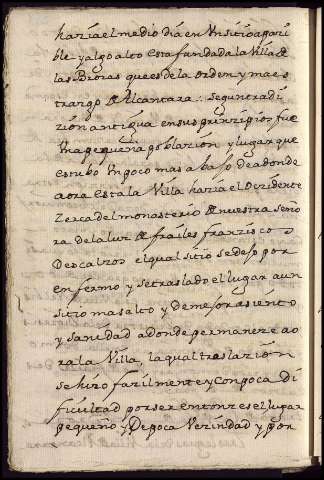 hazia el medio dia en Un sitio apazi
ble y algo alto esta fundada la Villa de
las Brozas que es de la orden y maes
trazgo de Alcantara . segun tradi
zion antigua en sus prinzipios fue
Una pequeña poblazion y lugar que
estubo Un poco mas abaxo de adonde
aora esta la Villa hazia el Ozidente
zerca del monasterio de nuestra seño
ra de la luz de frailes franzisco
Descalzos el qual sitio se dexo por
enfermo y se traslado el lugar a un
sitio mas alto y de mexor asiento
y sanidad adonde permaneze ao
ra la Villa la qual traslazion
se hizo fazilmente y con poca di
ficultad por ser entonzes el lugar
pequeño y De poca Vezindad y por